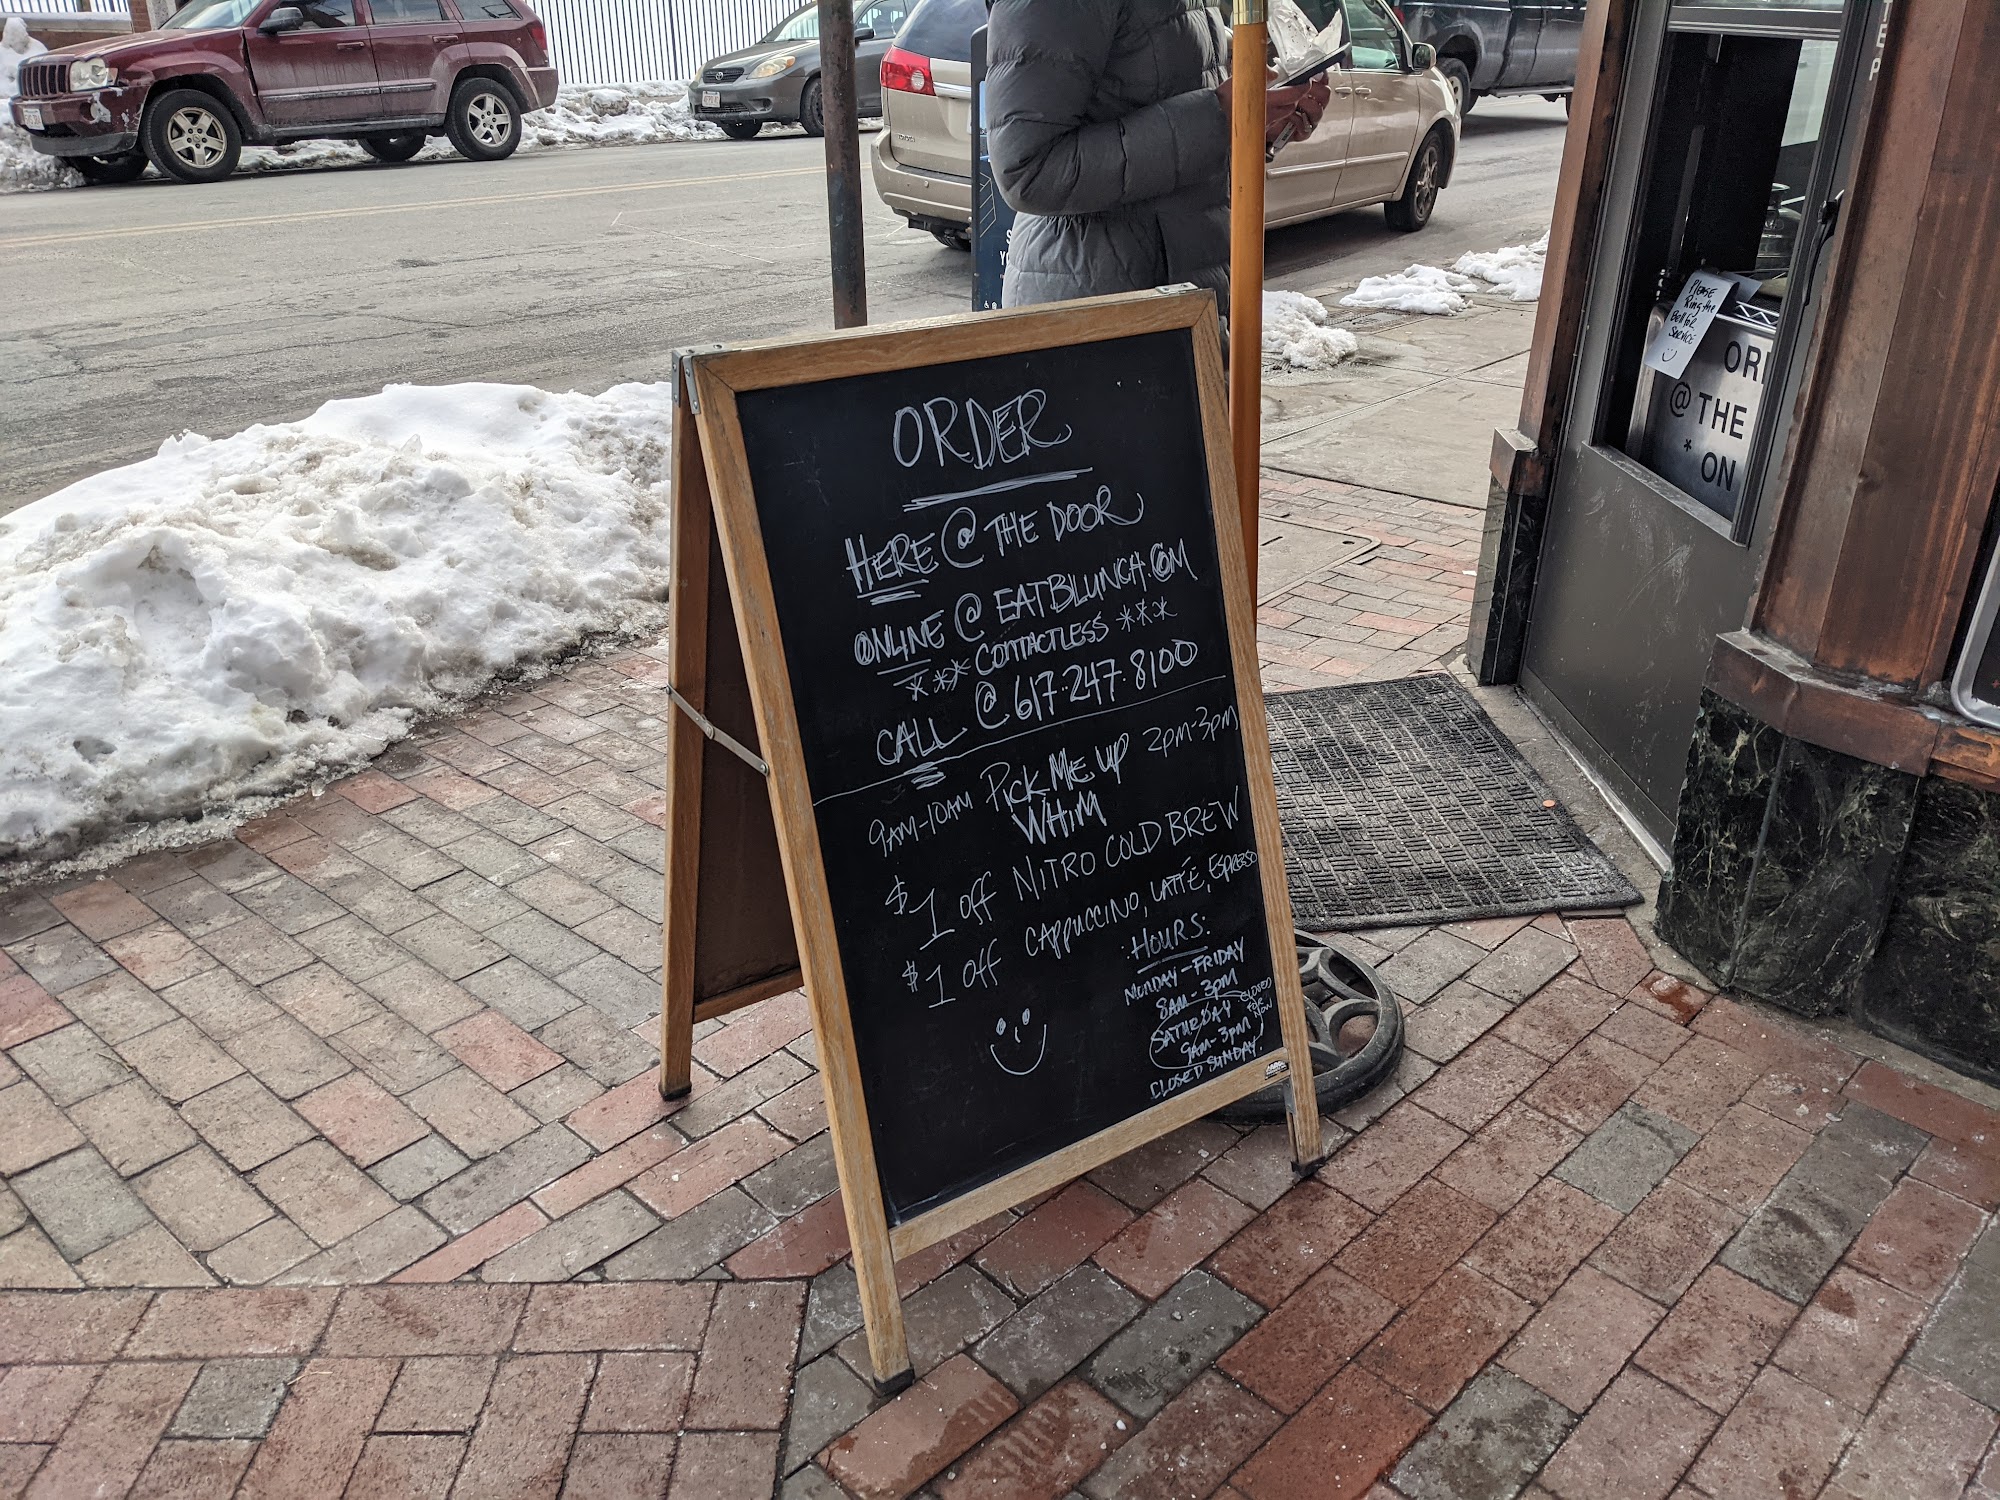 ORDER
HERE @ THE DOOR
ONLINE @ EATBLUNCH.COM
*** CONTACTLESS ***
CALL @ 617·247·8100
9AM-10AM PICK ME UP 2PM-3PM
WHiM
$1 off NITRO COLD BREW
$1 off CAPPUCCINO, LATTÉ, ESPRESSO
HOURS:
MONDAY-FRIDAY
8AM-3PM
SATURDAY CLOSED FOR NOW
9AM-3PM
CLOSED SUNDAY.
PLEASE
Ring the
Bell for
SERVICE
OR
@ THE
* ON